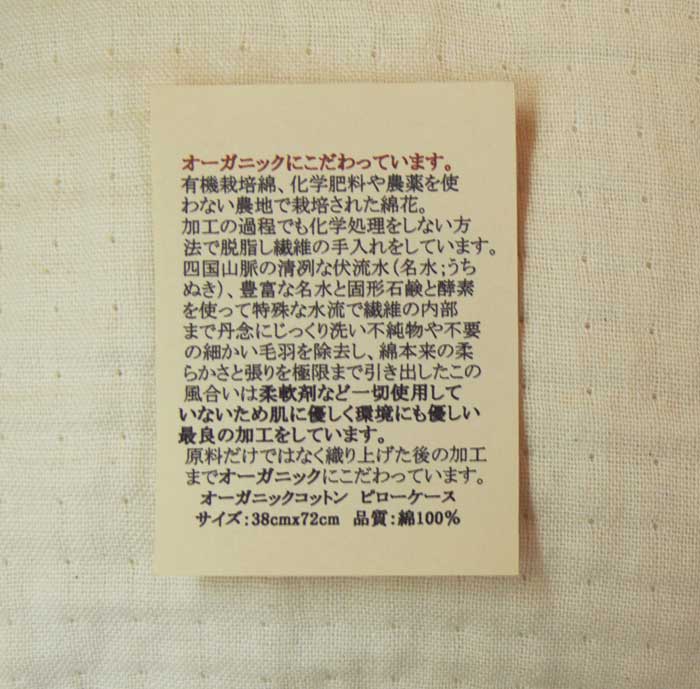 オーガニックにこだわっています。
有機栽培綿、化学肥料や農薬を使
わない農地で栽培された綿花。
加工の過程でも化学処理をしない方
法で脱脂し繊維の手入れをしています。
四国山脈の清冽な伏流水(名水;うち
ぬき)、豊富な名水と固形石鹸と酵素
を使って特殊な水流で繊維の内部
まで丹念にじっくり洗い不純物や不要
の細かい毛羽を除去し、綿本来の柔
らかさと張りを極限まで引き出したこの
風合いは柔軟剤など一切使用して
いないため肌に優しく環境にも優しい
最良の加工をしています。
原料だけではなく織り上げた後の加工
までオーガニックにこだわっています。
オーガニックコットン ピローケース
サイズ:38cmx72cm 品質:綿100%